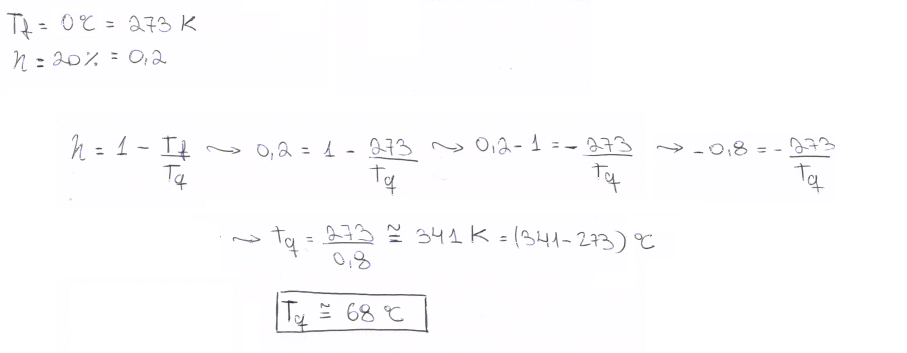 Tf = 0℃ = 273 K
η = 20% = 0,2
η = 1 - Tf/Tq ⇝ 0,2 = 1 - 273/Tq ⇝ 0,2-1 = - 273/Tq ⇝ -0,8 = - 273/Tq
⇝ Tq = 273/0,8 ≅ 341 K = (341-273) ℃
Tq ≅ 68 ℃